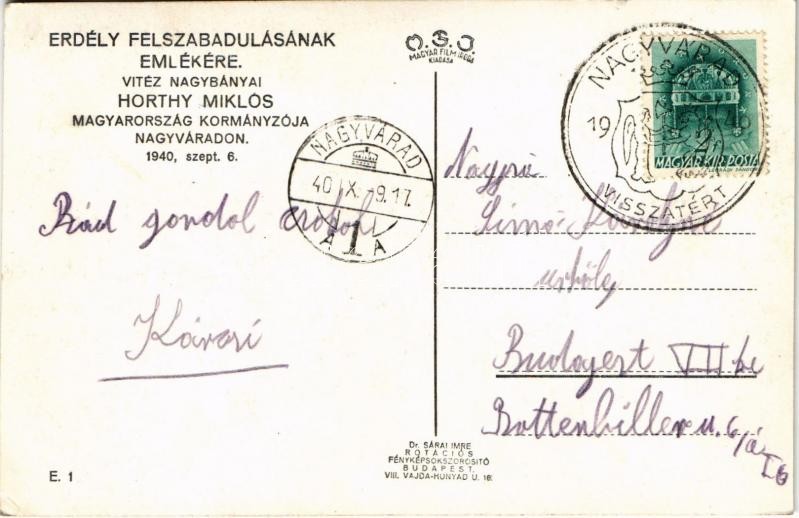 ERDÉLY FELSZABADULÁSÁNAK
EMLÉKÉRE.
VITÉZ NAGYBÁNYAI
HORTHY MIKLÓS
MAGYARORSZÁG KORMÁNYZÓJA
NAGYVÁRADON.
1940, szept. 6.
MAGYAR FILM IRODA
KIADÁSA
NAGYVÁRAD
40 IX. -9.17.
A 1 A
NAGYVÁRAD
19 40
VISSZATÉRT
2
MAGYAR KIR. POSTA
Rád gondol
Budapest VII ke
Bottenbiller u.
Dr. SÁRAI IMRE
ROTÁCIÓS
FÉNYKÉPSOKSZOROSITÓ
BUDAPEST,
VIII. VAJDA-HUNYAD U. 16.
E. 1